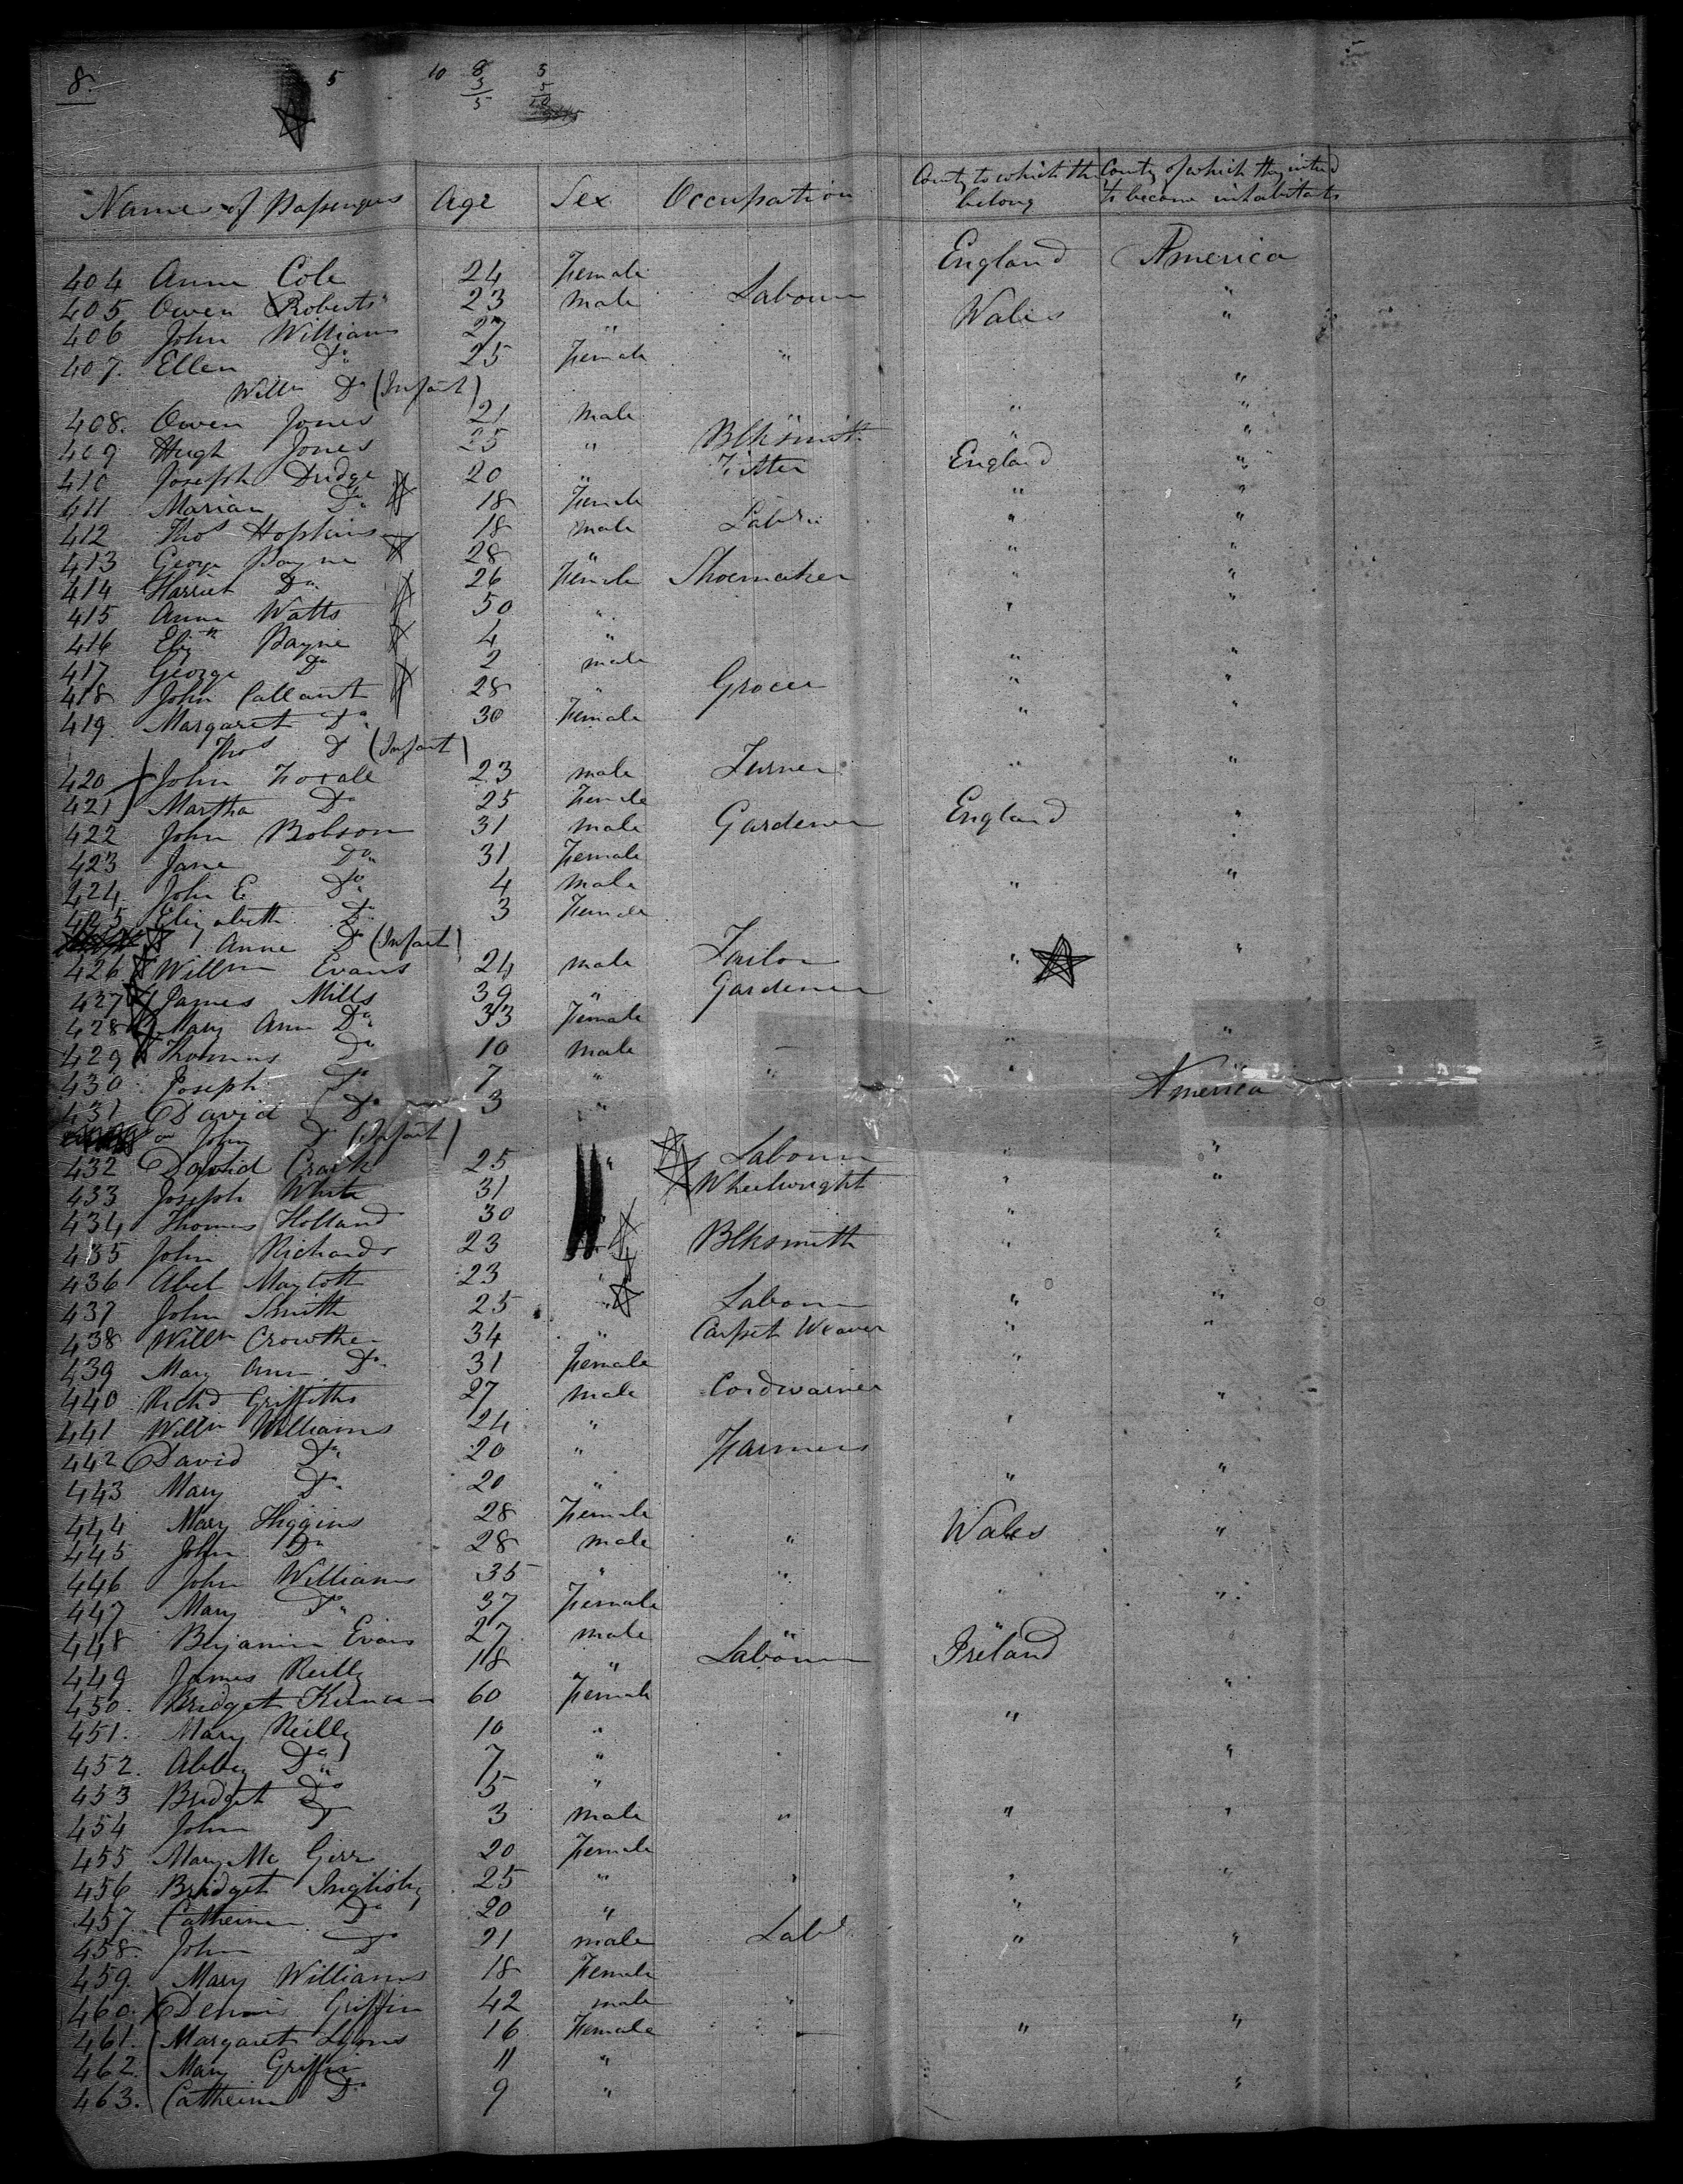 8.
5 10 8 5
3 5
5 10
Names of Passengers Age Sex Occupation County to which they belong County of which they intend to become inhabitants
404 Anne Cole 24 Female England America
405 Owen Roberts 23 male Labour Wales "
406 John Williams 27 "
407. Ellen Do 25 Female "
Willm Do (Infant) "
408. Owen Jones 21 male " "
409 Hugh Jones 25 " Blksmith " "
410 Joseph Dridge 20 " Fitter England "
411 Marian Do 18 Female " "
412 Thos Hopkins 18 male Labr " "
413 George Payne 28 " " "
414 Harriet Do 26 Female Shoemaker " "
415 Anne Watts 50 " " "
416 Elizth Payne 4 "
417 George Do 2 male " "
418 John Callant 28 " Grocer " "
419. Margaret Do 30 Female " "
Thos Do (Infant)
420 John Foxall 23 male Turner " "
421 Martha Do 25 Female
422 John Bobson 31 male Gardener England "
423 Jane Do 31 Female
424 John E Do 4 male " "
425 Elizabeth Do 3 Female
Anne Do (Infant)
426 Willm Evans 24 male Tailor " "
427 James Mills 39 " Gardener
428 Mary Ann Do 33 Female "
429 Thomas Do 10 male - " "
430 Joseph Do 7 " " " "
431 David Do 3 " America
John Do (Infant)
432 David Crark 25 " Labour " "
433 Joseph White 31 Wheelwright " "
434 Thomas Holland 30 "
435 John Richards 23 Blksmith " "
436 Abel Maytott 23 "
437 John Smith 25 " Labour " "
438 Willm Crowther 34 " Carpet Weaver " "
439 Mary Ann Do 31 Female "
440 Richd Griffiths 27 male Cordwainer "
441 Willm Williams 24 " "
442 David Do 20 " Farmers
443 Mary Do 20 " " "
444 Mary Higgins 28 Female
445 John Do 28 male " Wales "
446 John Williams 35 " "
447 Mary Do 37 Female " "
448 Benjamin Evans 27 male " " "
449 James Reilly 18 " Labour Ireland
450. Bridget Kiernan 60 Female "
451. Mary Reilly 10 " "
452. Abbey Do 7 " "
453 Bridget Do 5 "
454 John Do 3 male " " "
455 Mary Mc Girr 20 Female
456 Bridget Inglisby 25 " " " "
457. Catherine Do 20 " "
458. John Do 21 male Labr " "
459. Mary Williams 18 Female
460. Dennis Griffin 42 male "
461. Margaret Lyons 16 Female " "
462. Mary Griffin 11 "
463. Catherine Do 9 " "